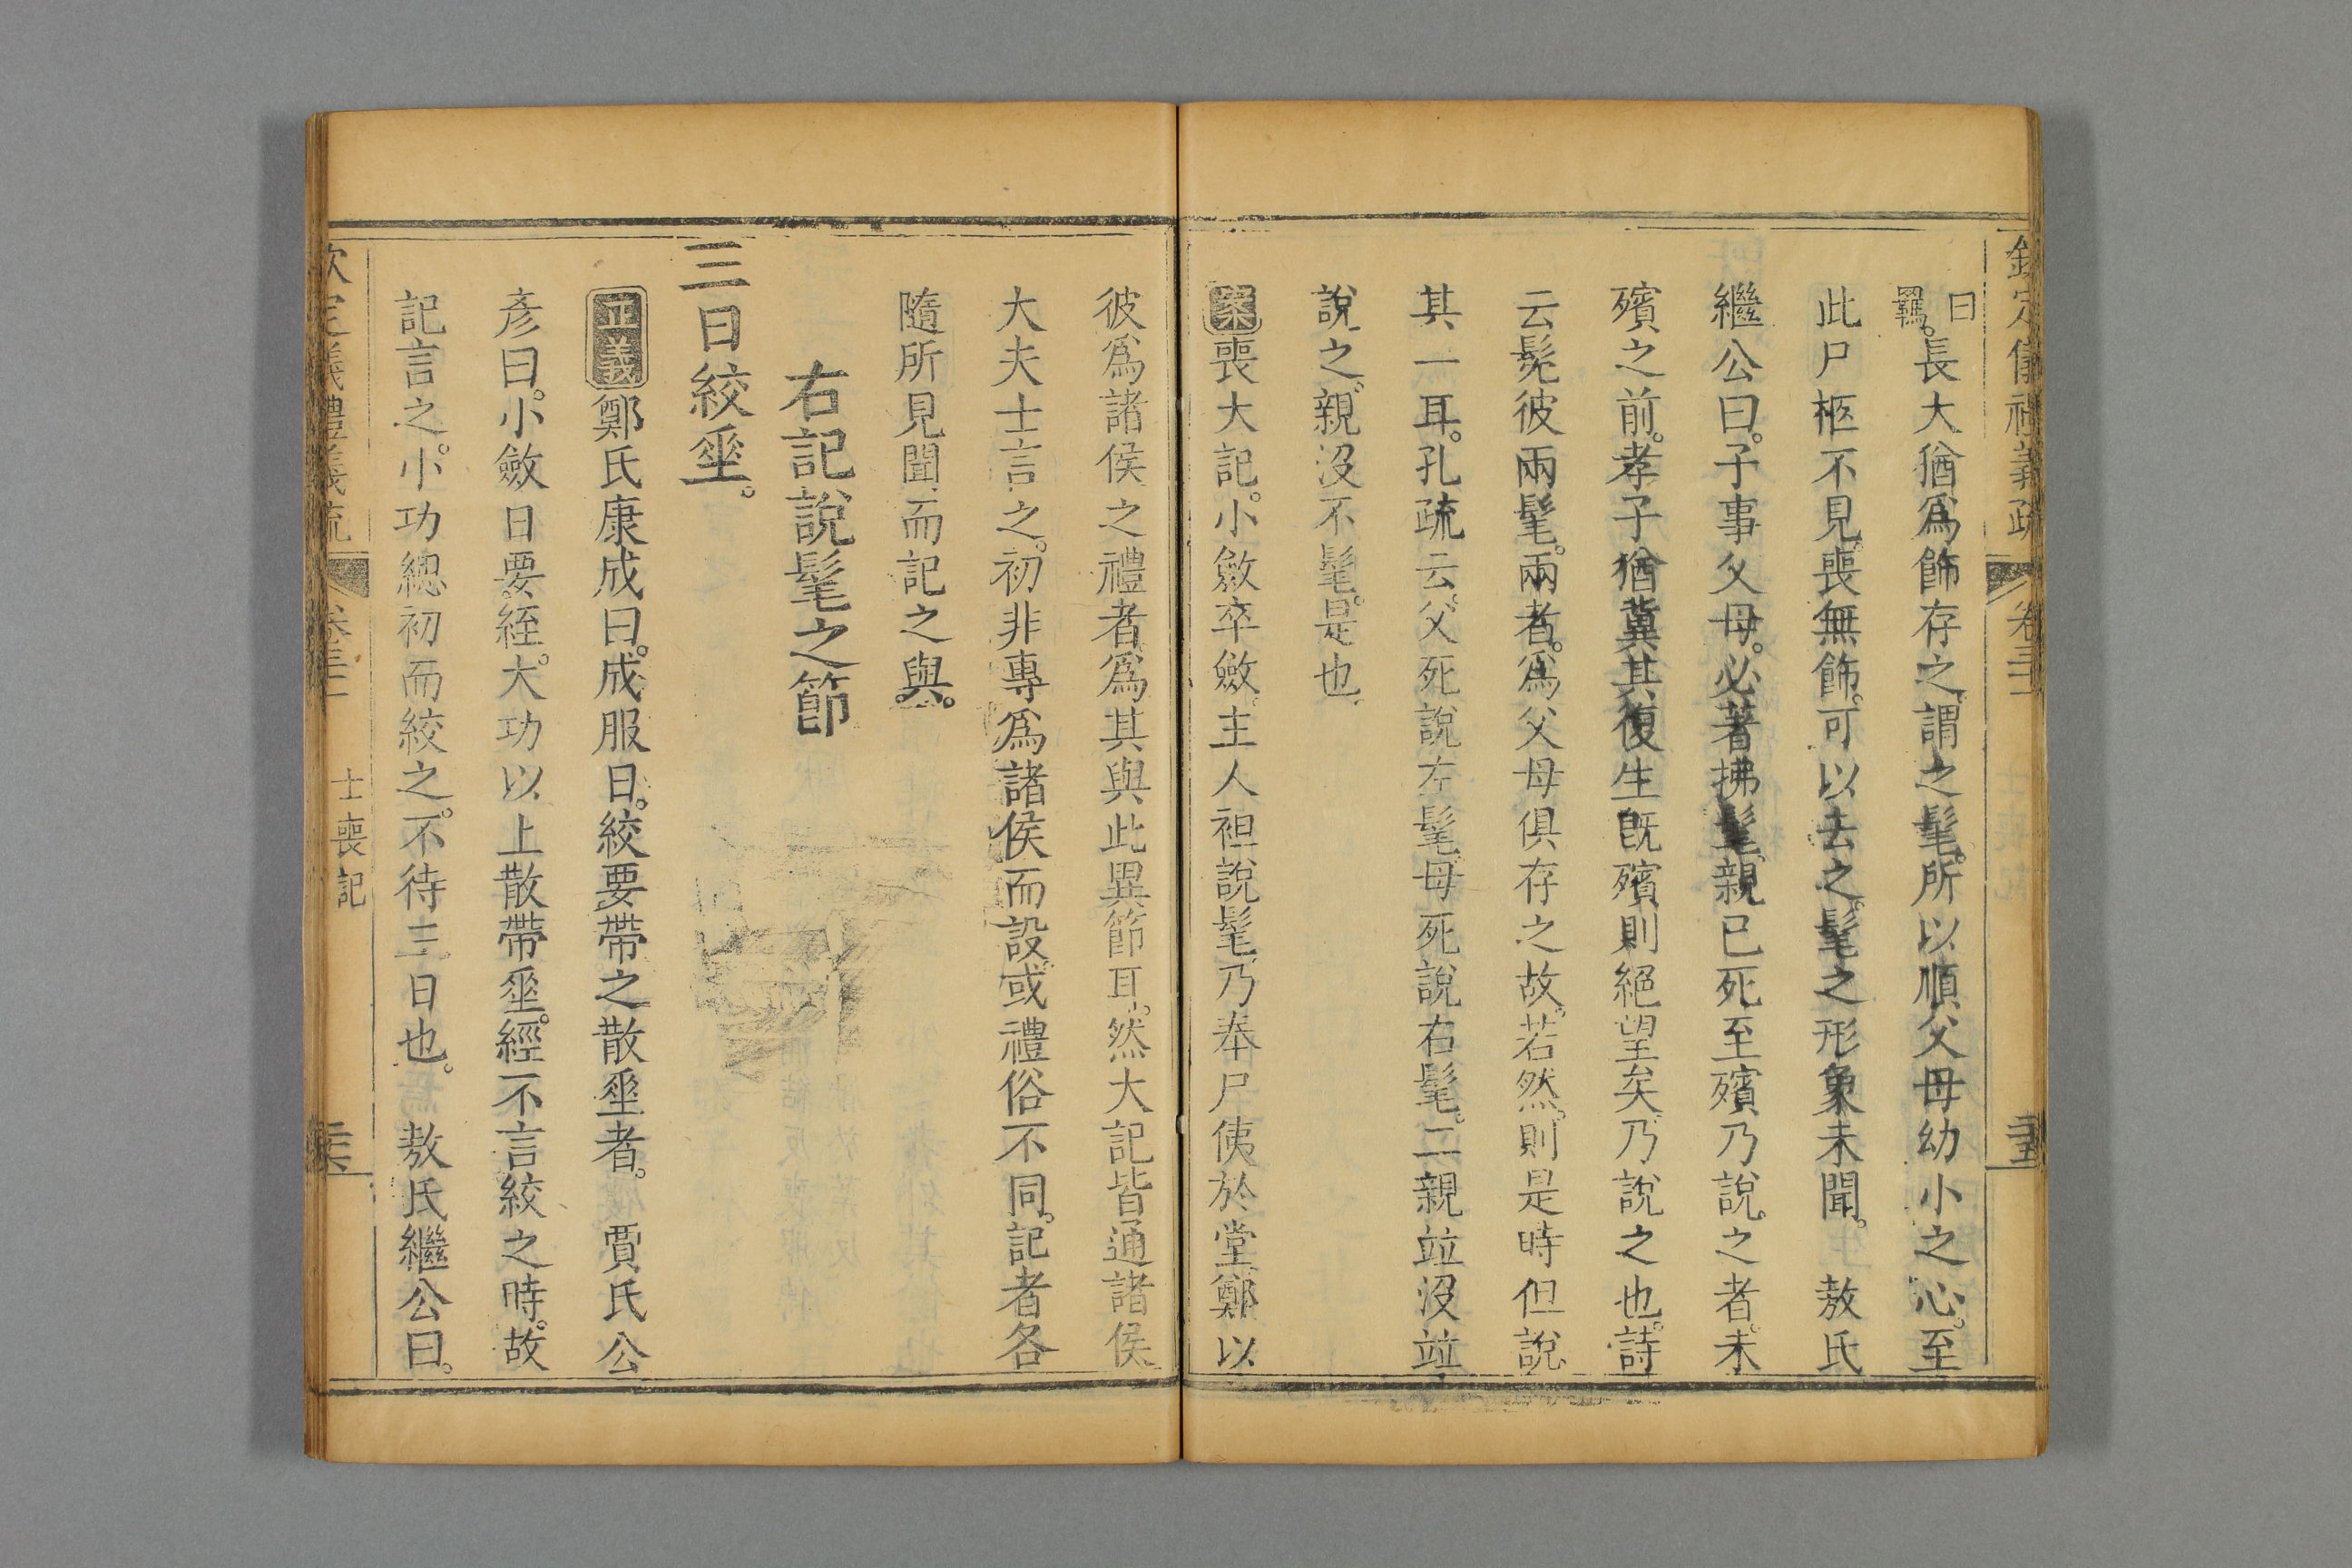 欽定儀禮義疏 卷三十一
曰羈。長大猶爲飾存之。謂之髦。所以順父母幼小之心。至
此尸柩不見。喪無飾。可以去之。髦之形象未聞。 敖氏
繼公曰。子事父母。必著拂髦。親已死至殯乃說之者。未
殯之前。孝子猶冀其復生旣殯則絕望矣乃說之也。詩
云髧彼兩髦。兩者。爲父母俱存之故。若然。則是時但說
其一耳。孔疏云。父死說左髦。母死說右髦。二親竝沒竝
說之。親沒不髦。是也
案喪大記。小斂卒斂。主人袒說髦。乃奉尸侇於堂鄭以
彼爲諸侯之禮者。爲其與此異節耳。然大記皆通諸侯
大夫士言之。初非專爲諸侯而設。或禮俗不同。記者各
隨所見聞而記之與。
右記說髦之節
三日絞垂。
正義鄭氏康成曰。成服日。絞要帶之散垂者。 賈氏公
彥曰。小斂日要絰。大功以上散帶垂。經不言絞之時。故
記言之。小功緦初而絞之。不待三日也。 敖氏繼公曰。
欽定儀禮義疏 卷三十一 士喪記